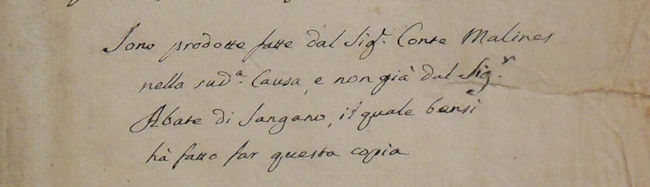 Sono prodotte fatte dal Sig.r Conte Malines
nella sud.a Causa, e non già dal Sig.r
Abate di Sangano, il quale bensì
hà fatto far questa copia